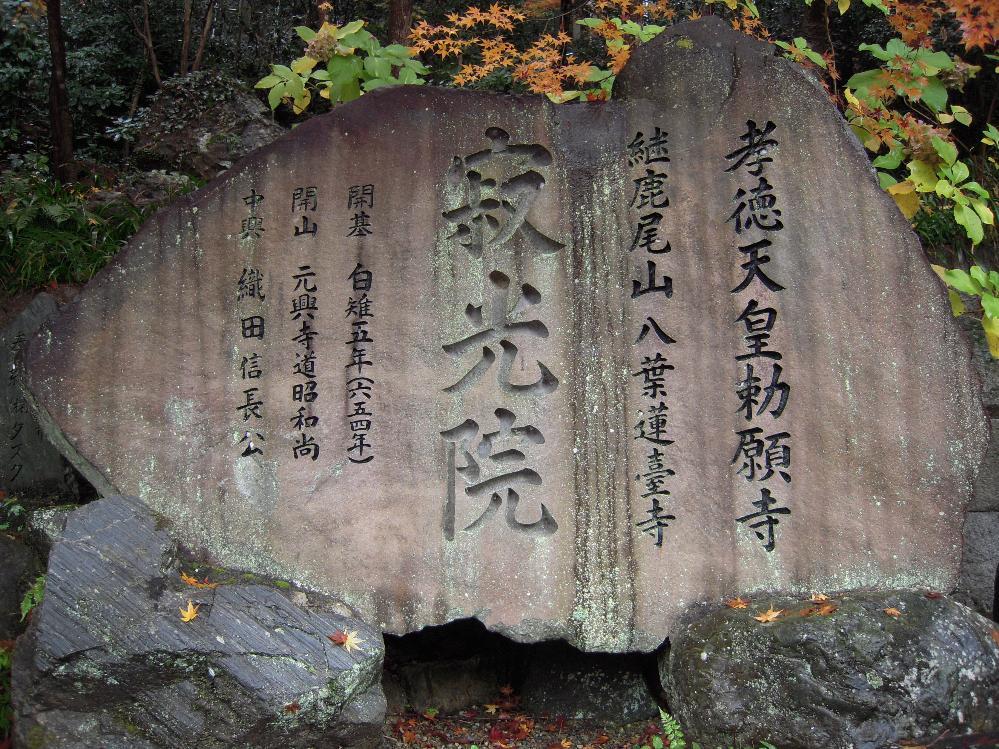 孝徳天皇勅願寺
継鹿尾山 八葉蓮臺寺
寂光院
開基 白雉五年(六五四年)
開山 元興寺道昭和尚
中興 織田信長公